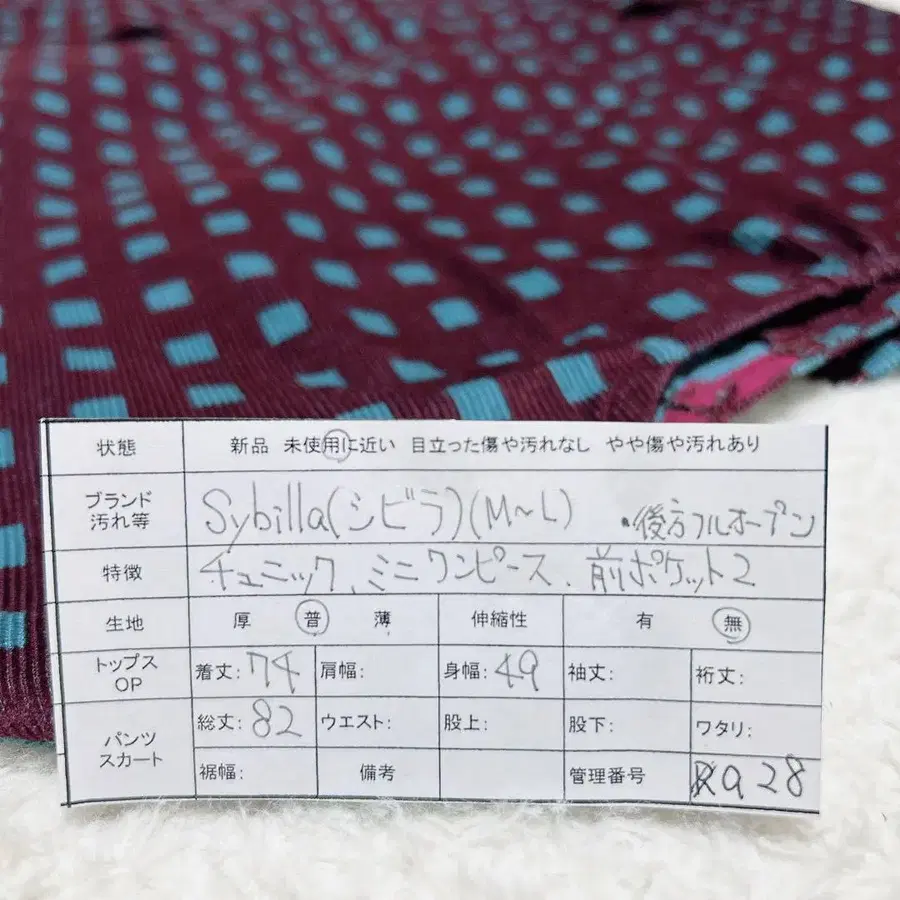 状態 新品 未使用に近い 目立った傷や汚れなし やや傷や汚れあり
ブランド 汚れ等 Sybilla(シビラ)(M~L) ・後方フルオープン
特徴 チュニック、ミニワンピース、前ポケット2
生地 厚 普 薄 伸縮性 有 無
トップス OP 着丈:74 肩幅: 身幅:49 袖丈: 裄丈:
パンツ スカート 総丈:82 ウエスト: 股上: 股下: ワタリ:
裾幅: 備考 管理番号 a28